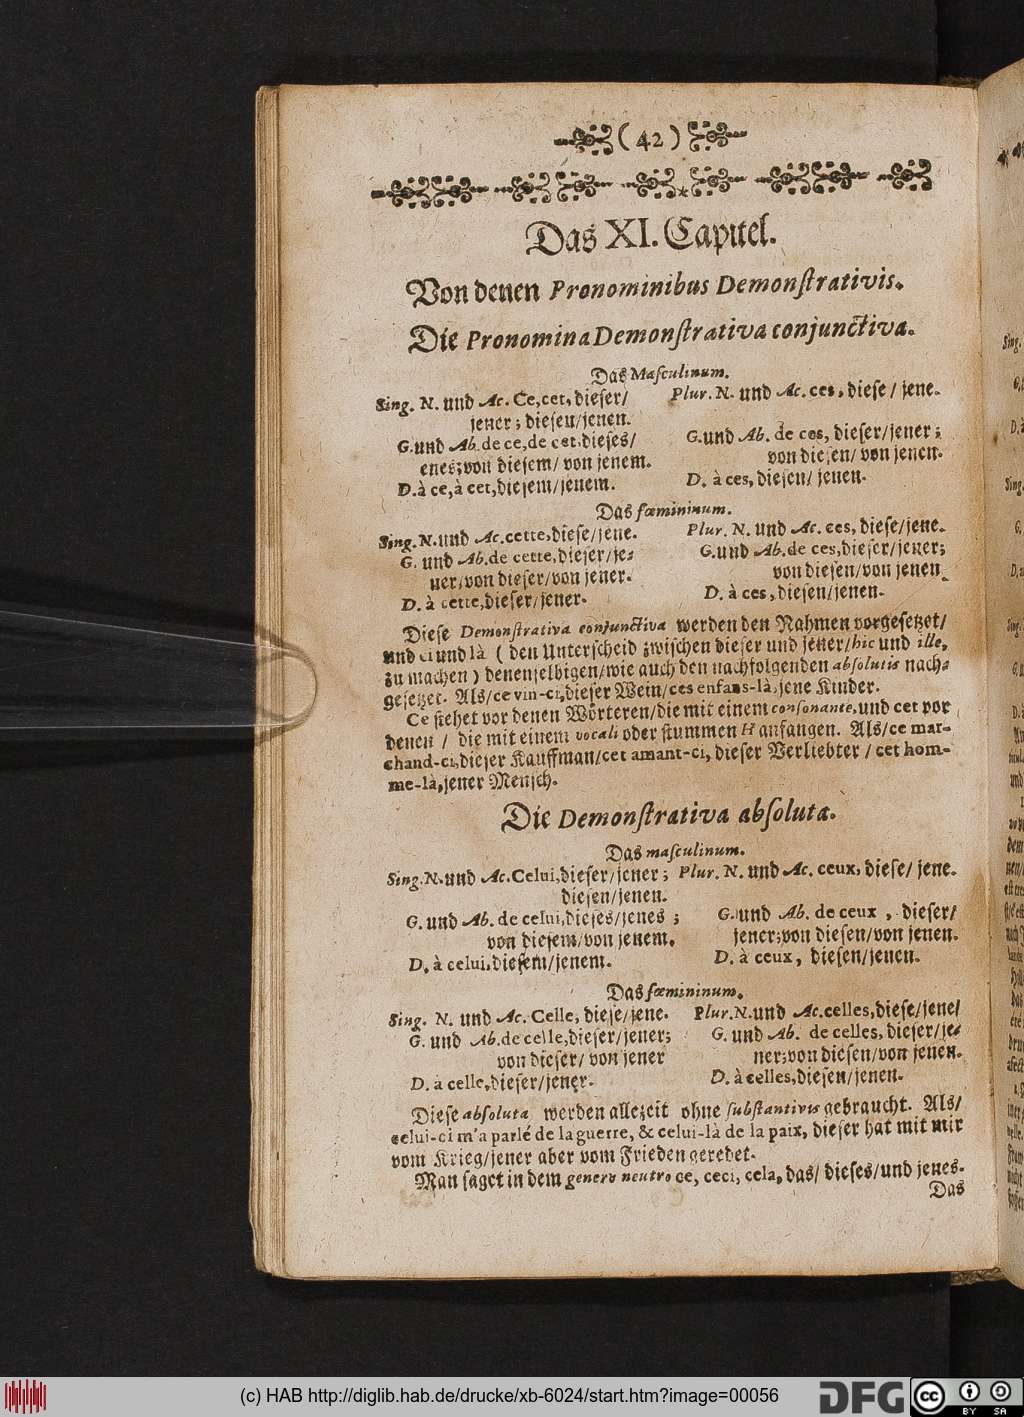 ( 42 )
Das XI. Capitel.
Von denen Pronominibus Demonſtrativis.
Die Pronomina Demonſtrativa conjunctiva.
Das Maſculinum.
Sing. N. und Ac. Ce, cet, dieſer/
jener; dieſen/jenen.
G. und Ab. de ce, de cet, dieſes/
enes; von dieſem/ von jenem.
D. à ce, à cet, dieſem/jenem.
Plur. N. und Ac. ces, dieſe / jene.
G. und Ab. de ces, dieſer/jener;
von dieſen/ von jenen.
D. à ces, dieſen/ jenen.
Das fœmininum.
Sing. N. und Ac. cette, dieſe/jene.
G. und Ab. de cette, dieſer/je⸗
ner/von dieſer/von jener.
D. à cette, dieſer/jener.
Plur. N. und Ac. ces, dieſe/jene.
G. und Ab. de ces, dieſer/jener;
von dieſen/von jenen.
D. à ces, dieſen/jenen.
Dieſe Demonſtrativa conjunctiva werden den Nahmen vorgeſetzet/
und ci und là ( den Unterſcheid zwiſchen dieſer und jener/hic und ille,
zu machen ) denenſelbigen/wie auch den nachfolgenden abſolutis nach⸗
geſetzet. Als/ce vin-ci, dieſer Wein/ces enfans-là, jene Kinder.
Ce ſtehet vor denen Wörteren/die mit einem conſonante, und cet vor
denen / die mit einem vocali oder ſtummen H anfangen. Als/ce mar-
chand-ci, dieſer Kauffman/cet amant-ci, dieſer Verliebter / cet hom-
me-là, jener Menſch.
Die Demonſtrativa abſoluta.
Das maſculinum.
Sing. N. und Ac. Celui, dieſer/jener;
dieſen/jenen.
G. und Ab. de celui, dieſes/jenes ;
von dieſem/von jenem.
D. à celui, dieſem/jenem.
Plur. N. und Ac. ceux, dieſe/ jene.
G. und Ab. de ceux , dieſer/
jener; von dieſen/von jenen.
D. à ceux, dieſen/jenen.
Das fœmininum.
Sing. N. und Ac. Celle, dieſe/jene.
G. und Ab. de celle, dieſer/jener;
von dieſer/ von jener
D. à celle, dieſer/jener.
Plur. N. und Ac. celles, dieſe/jene/
G. und Ab. de celles, dieſer/je⸗
ner; von dieſen/von jenen.
D. à celles, dieſen/jenen.
Dieſe abſoluta werden allezeit ohne ſubſtantivis gebraucht. Als/
celui-ci m'a parlé de la guerre, & celui-là de la paix, dieſer hat mit mir
vom Krieg/jener aber vom Frieden geredet.
Man ſaget in dem genere neutro ce, ceci, cela, das/ dieſes/und jenes.
Das
(c) HAB http://diglib.hab.de/drucke/xb-6024/start.htm?image=00056
DFG
cc BY SA